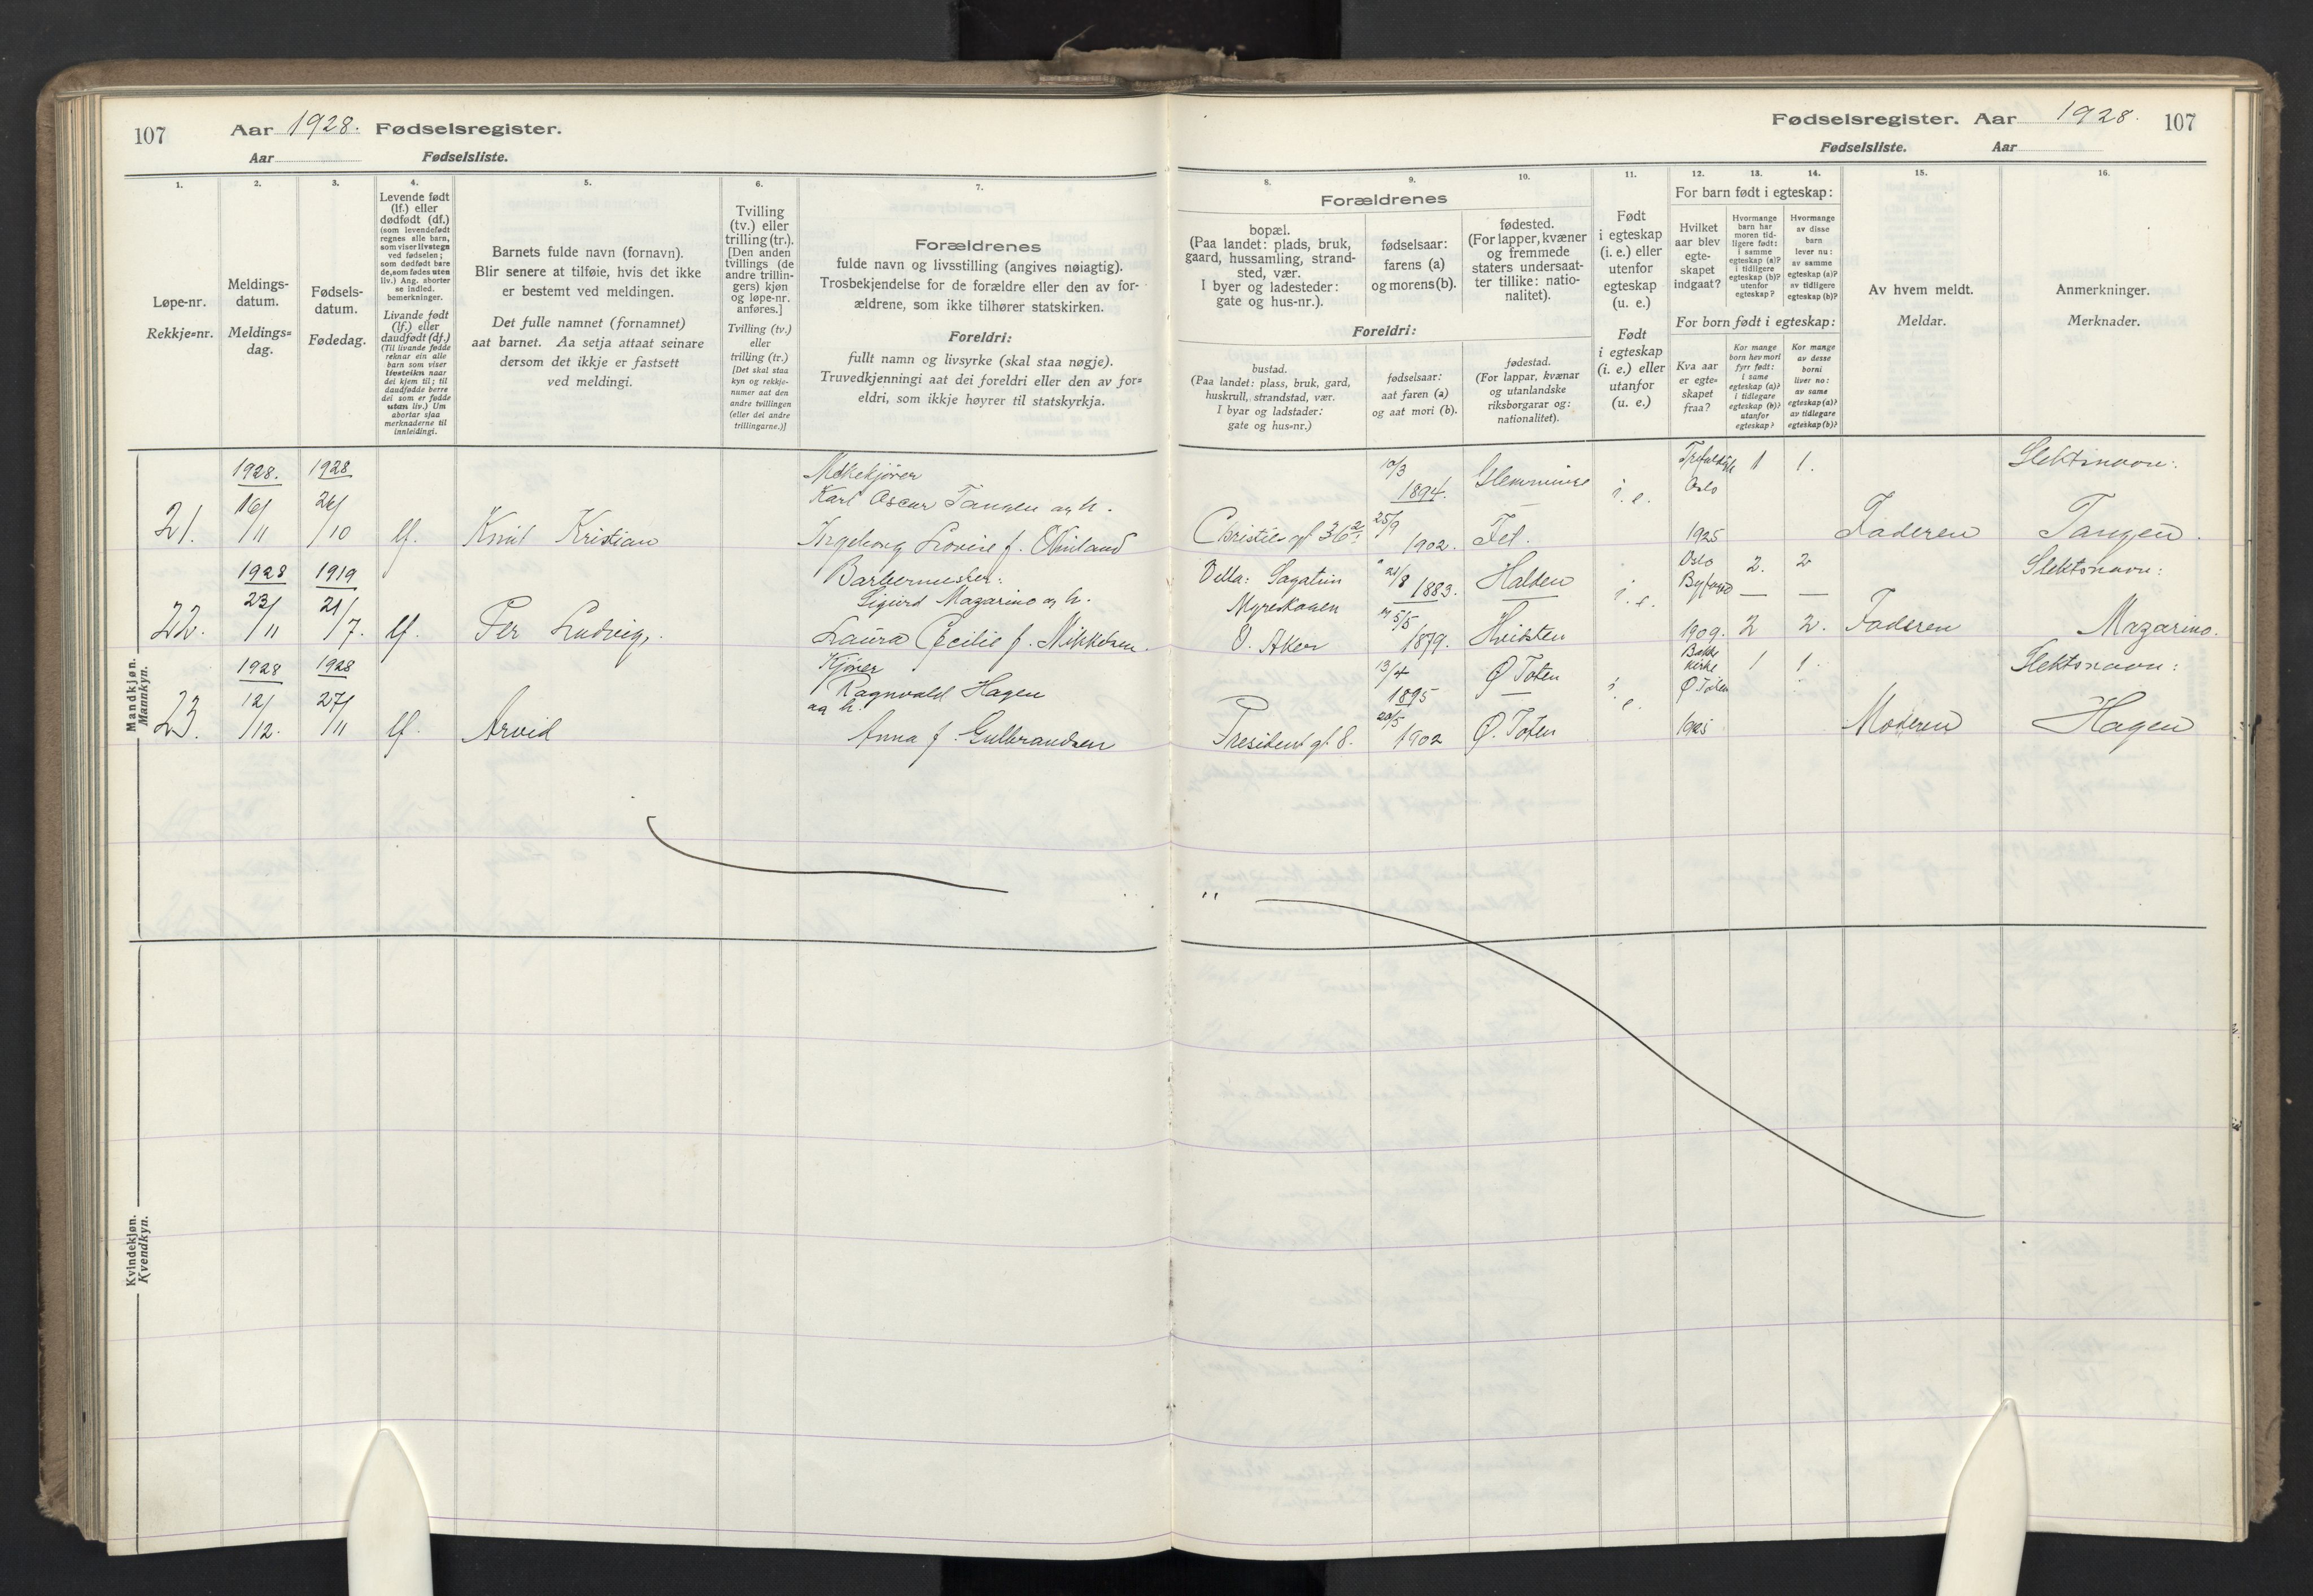 107
Aar 1928. Fødselsregister.
Aar Fødselsliste.
Fødselsregister. Aar 1928. 107
Fødselsliste. Aar
1.
Løpe-nr.
Rekkje=nr.
2.
Meldings-
datum.
Meldings=
dag.
3.
Fødsels-
datum.
Fødedag.
4.
Levende født
(lf.) eller
dødfødt (df.)
(som levendefødt
regnes alle barn,
som viser livstegn
ved fødselen;
som dødfødt bare
de, som fødes uten
liv.) Ang. aborter
se indled.
bemerkninger.
Livande født
(lf.) eller
daudfødt (df.)
(Til livande fødde
reknar ein alle
barn som viser
livsteikn naar
dei kjem til; til
daudfødde berre
dei som er fødde
utan liv.) Um
abortar sjaa
merknaderne til
innleidingi.
5.
Barnets fulde navn (fornavn).
Blir senere at tilføie, hvis det ikke
er bestemt ved meldingen.
Det fulle namnet (fornamnet)
aat barnet. Aa setja attaat seinare
dersom det ikkje er fastsett
ved meldingi.
6.
Tvilling
(tv.) eller
trilling (tr.).
[Den anden
tvillings (de
andre trillin-
gers) kjøn
og løpe-nr.
anføres.]
Tvilling (tv.)
eller
trilling (tr.)
[Det skal staa
kyn og rekkje-
numer aat den
andre tvillingen
(eller dei andre
trillingarne.)]
7.
Forældrenes
fulde navn og livsstilling (angives nøiagtig).
Trosbekjendelse for de forældre eller den av for-
ældrene, som ikke tilhører statskirken.
Foreldri:
fullt namn og livsyrke (skal staa nøgje).
Truvedkjenningi aat dei foreldri eller den av for=
eldri, som ikkje høyrer til statskyrkja.
Forældrenes
8.
bopæl.
(Paa landet: plads, bruk,
gaard, hussamling, strand-
sted, vær.
I byer og ladesteder:
gate og hus-nr.).
9.
fødselsaar:
farens (a)
og morens (b).
10.
fødested.
(For lapper, kvæner
og fremmede
staters undersaat-
ter tillike: natio-
nalitet).
Foreldri:
bustad.
(Paa landet: plass, bruk, gard,
huskrull, strandstad, vær.
I byar og ladstader:
gate og hus=nr.)
fødselsaar:
aat faren (a)
og aat mori (b).
fødestad.
(For lappar, kvænar
og utanlandske
riksborgarar og:
nationalitet).
11.
Født
i egteskap
(i. e.) eller
utenfor
egteskap
(u. e.)
Født
i egteskap
(i. e.) eller
utanfor
(u. e.)
12. 13. 14.
For barn født i egteskap:
Hvilket
aar blev
egte-
skapet
indgaat?
Hvormange
barn har
moren tid-
ligere født:
i samme
egteskap (a)?
i tidligere
egteskap (b)?
utenfor
egteskap?
Hvormange
av disse
barn
lever nu:
av samme
egteskap (a)?
av tidligere
egteskap (b)?
For born født i egteskap:
Kva aar
er egte=
skapet
fraa?
Kor mange
born hev mori
fyrr født:
i same
egteskap (a)?
i tidlegare
egteskap (b)?
utanfor
egteskap?
Kor mange
av desse
borni
liver no:
av same
egteskap (a)?
av tidlegare
egteskap (b)?
15.
Av hvem meldt.
Meldar.
16.
Anmerkninger.
Merknader.
Mandkjøn.
Mannkyn.
1928. 1928 Karl Oscar Tangen og h. 10/3 1894. Oslo 1 1. Slektsnavn:
21. 16/11 26/10 lf. Knut Kristian Ingeborg Lovise f. i. e.
Christies gt 36 25/9 1902. Fet. 1925 Faderen Tangen.
1928 1919 Barbermester: Sigurd Mazarino og h. Villa: Sagatun 21/8 1883. Halden Oslo 2. 2 Slektsnavn:
22. 23/11 21/7. lf. Per Ludvig, Laura Cecilie f. Mikkelsen. i. e.
Myreskogen Ø. Aker 5/5 1879. 1909. 2 2. Faderen Mazarino.
1928 1928 Kjører Ragnvald Hagen og h. 13/4 1895 Ø Toten kirke Ø Toten 1 1. Slektsnavn:
23. 12/12. 27/11 lf. Arvid Anna f. Gulbrandsen i. e.
President gt. 8. 20/5 1902 Ø. Toten 1925 Moderen Hagen
Kvindekjøn.
Kvendkyn.